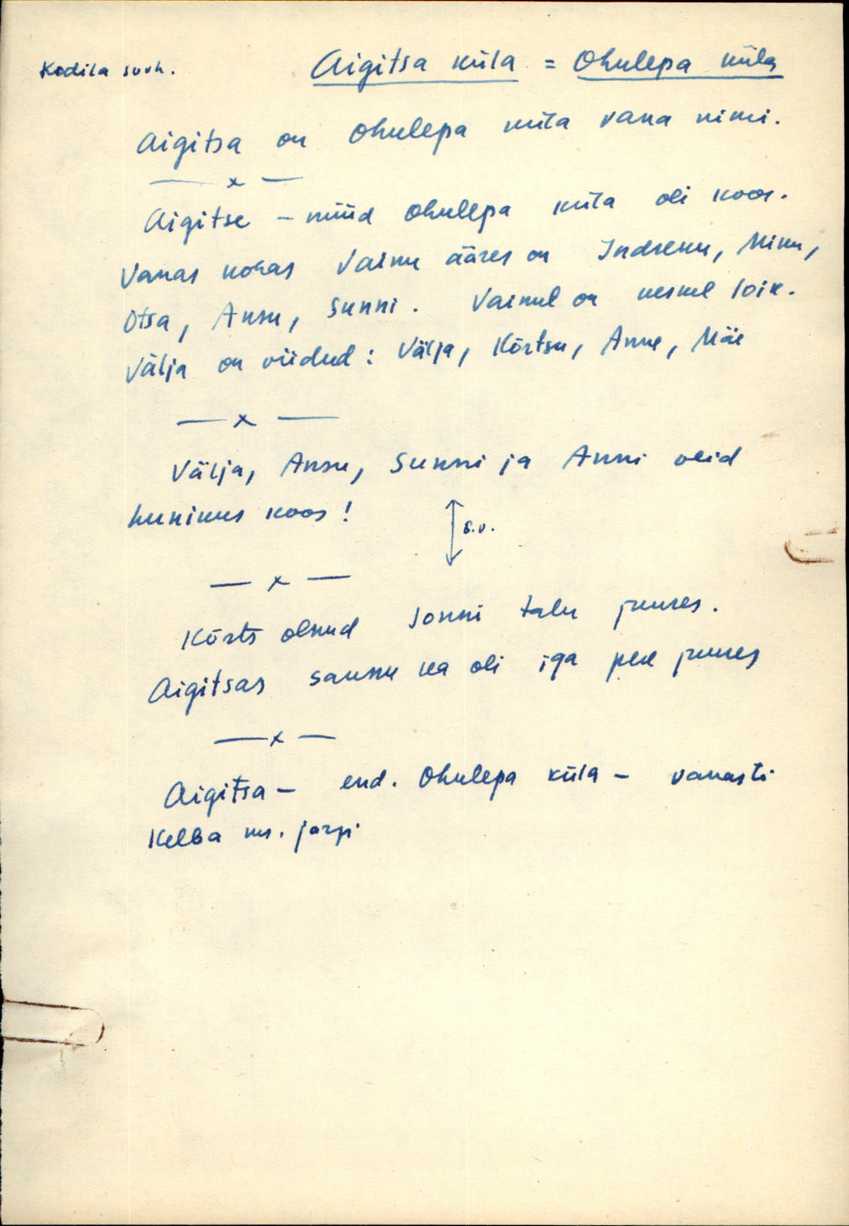 Kodila sovh. Aigitsa küla = Ohulepa küla
Aigitsa on Ohulepa küla vana nimi.
— x —
Aigitse – nüüd Ohulepa küla oli koos.
Vanas kohas Vainu ääres on Indreku, Niku,
Otsa, Ansu, Sunni. Vainul on keskel loik.
Välja on viidud: Välja, Kõrtsu, Anne, Mäe
— x —
Välja, Ansu, Sunni ja Anni olid
hunikus koos!
s.v.
— x —
Kõrts olnud Jonni talu juures.
Aigitsas sauna ka oli iga pere juures
— x —
Aigitsa – end. Ohulepa küla – vanasti
Kelba ms. järgi